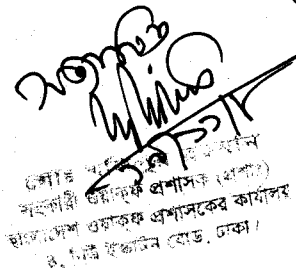 সত্যায়িত
মোঃ
সহকারী ওয়াক্‌ফ প্রশাসক (প্রশাঃ)
বাংলাদেশ ওয়াক্‌ফ প্রশাসকের কার্যালয়
৪, নিউ ইস্কাটন রোড, ঢাকা।